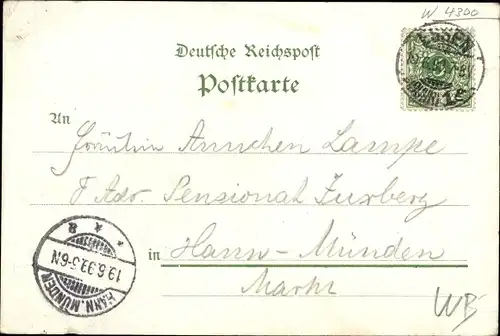 W 4300
ESSEN
Deutsche Reichspost
Postkarte
An
Fräulein Annchen Lampe
F. Adr. Pensionat Furberg
in Hann-Münden
Markt
HANN. MÜNDEN
19.6.99.5-6N
WB